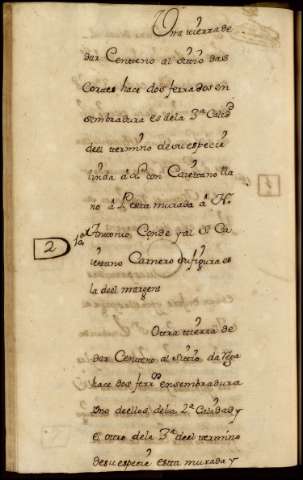 Otra tierra de
dar Centeno al sitio das
Cortes hace dos ferrados en
sembradura es dela 3ª Calid
deel termino de su especie
linda á Lte con Caietano lla
no á Pte esta murada á N.
Antonio Conde y al S. Ca
ietano Carnero su figura es
la deel margen
2
Otra tierra de
dar Centeno al sitio da Vega
hace dos ferros en sembradura
Uno deellos dela 2ª Calidad y
el otro dela 3ª deel termino
desu especie esta murada y